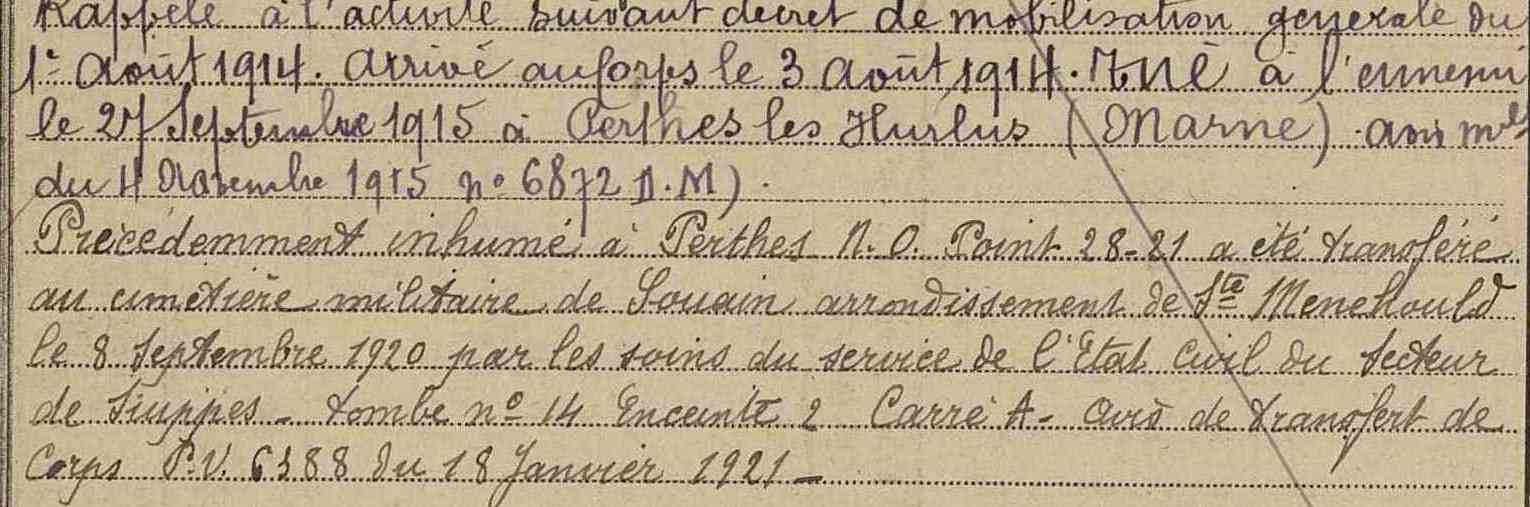 Rappelé à l'activité suivant décret de mobilisation générale du
1er Août 1914. Arrivé au Corps le 3 Août 1914. Tué à l'ennemi
le 27 Septembre 1915 à Perthes les Hurlus (Marne) avis mel
du 4 Novembre 1915 n° 6872 D.M).
Précédemment inhumé à Perthes N.O. Point 28-21 a été transféré
au cimetière militaire de Souain arrondissement de Ste Menehould
le 8 Septembre 1920 par les soins du service de l'Etat Civil du Secteur
de Suippes - tombe n° 14 Enceinte 2 Carré A - Avis de transfert de
Corps P.V. 6388 du 18 Janvier 1921 -